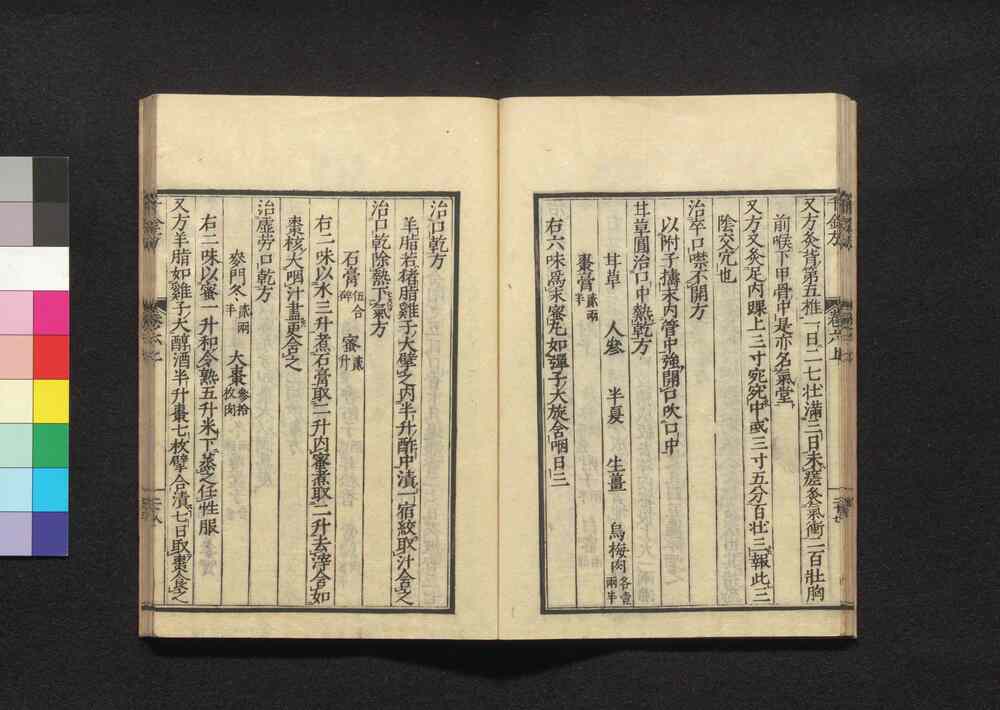 千金方
卷六上
又方灸背第五椎一日二七壮滿三日未瘥灸氣衝二百壯胸
前喉下甲骨中是亦名氣堂
又方又灸足内踝上三寸宛宛中或三寸五分百壮三報此三
陰交穴也
治卒口噤不開方
以附子擣末内管中強開口吹口中
甘草圓治口中熱乾方
甘草 人參 半夏 生薑 烏梅肉各壹兩半
棗膏貳兩半
右六味爲末蜜丸如彈子大旋含咽日三
治口乾方
羊脂若猪脂雞子大擘之内半升酢中漬一宿絞取汁含之
治口乾除熱下氣方
石膏伍合碎 蜜貳升
右二味以水三升煮石膏取二升内蜜煮取二升去滓含如
棗核大咽汁盡更含之
治虛勞口乾方
麥門冬貳兩半 大棗參拾枚肉
右二味以蜜一升和令熟五升米下蒸之任性服
又方羊脂如雞子大醇酒半升棗七枚擘合漬七日取棗食之